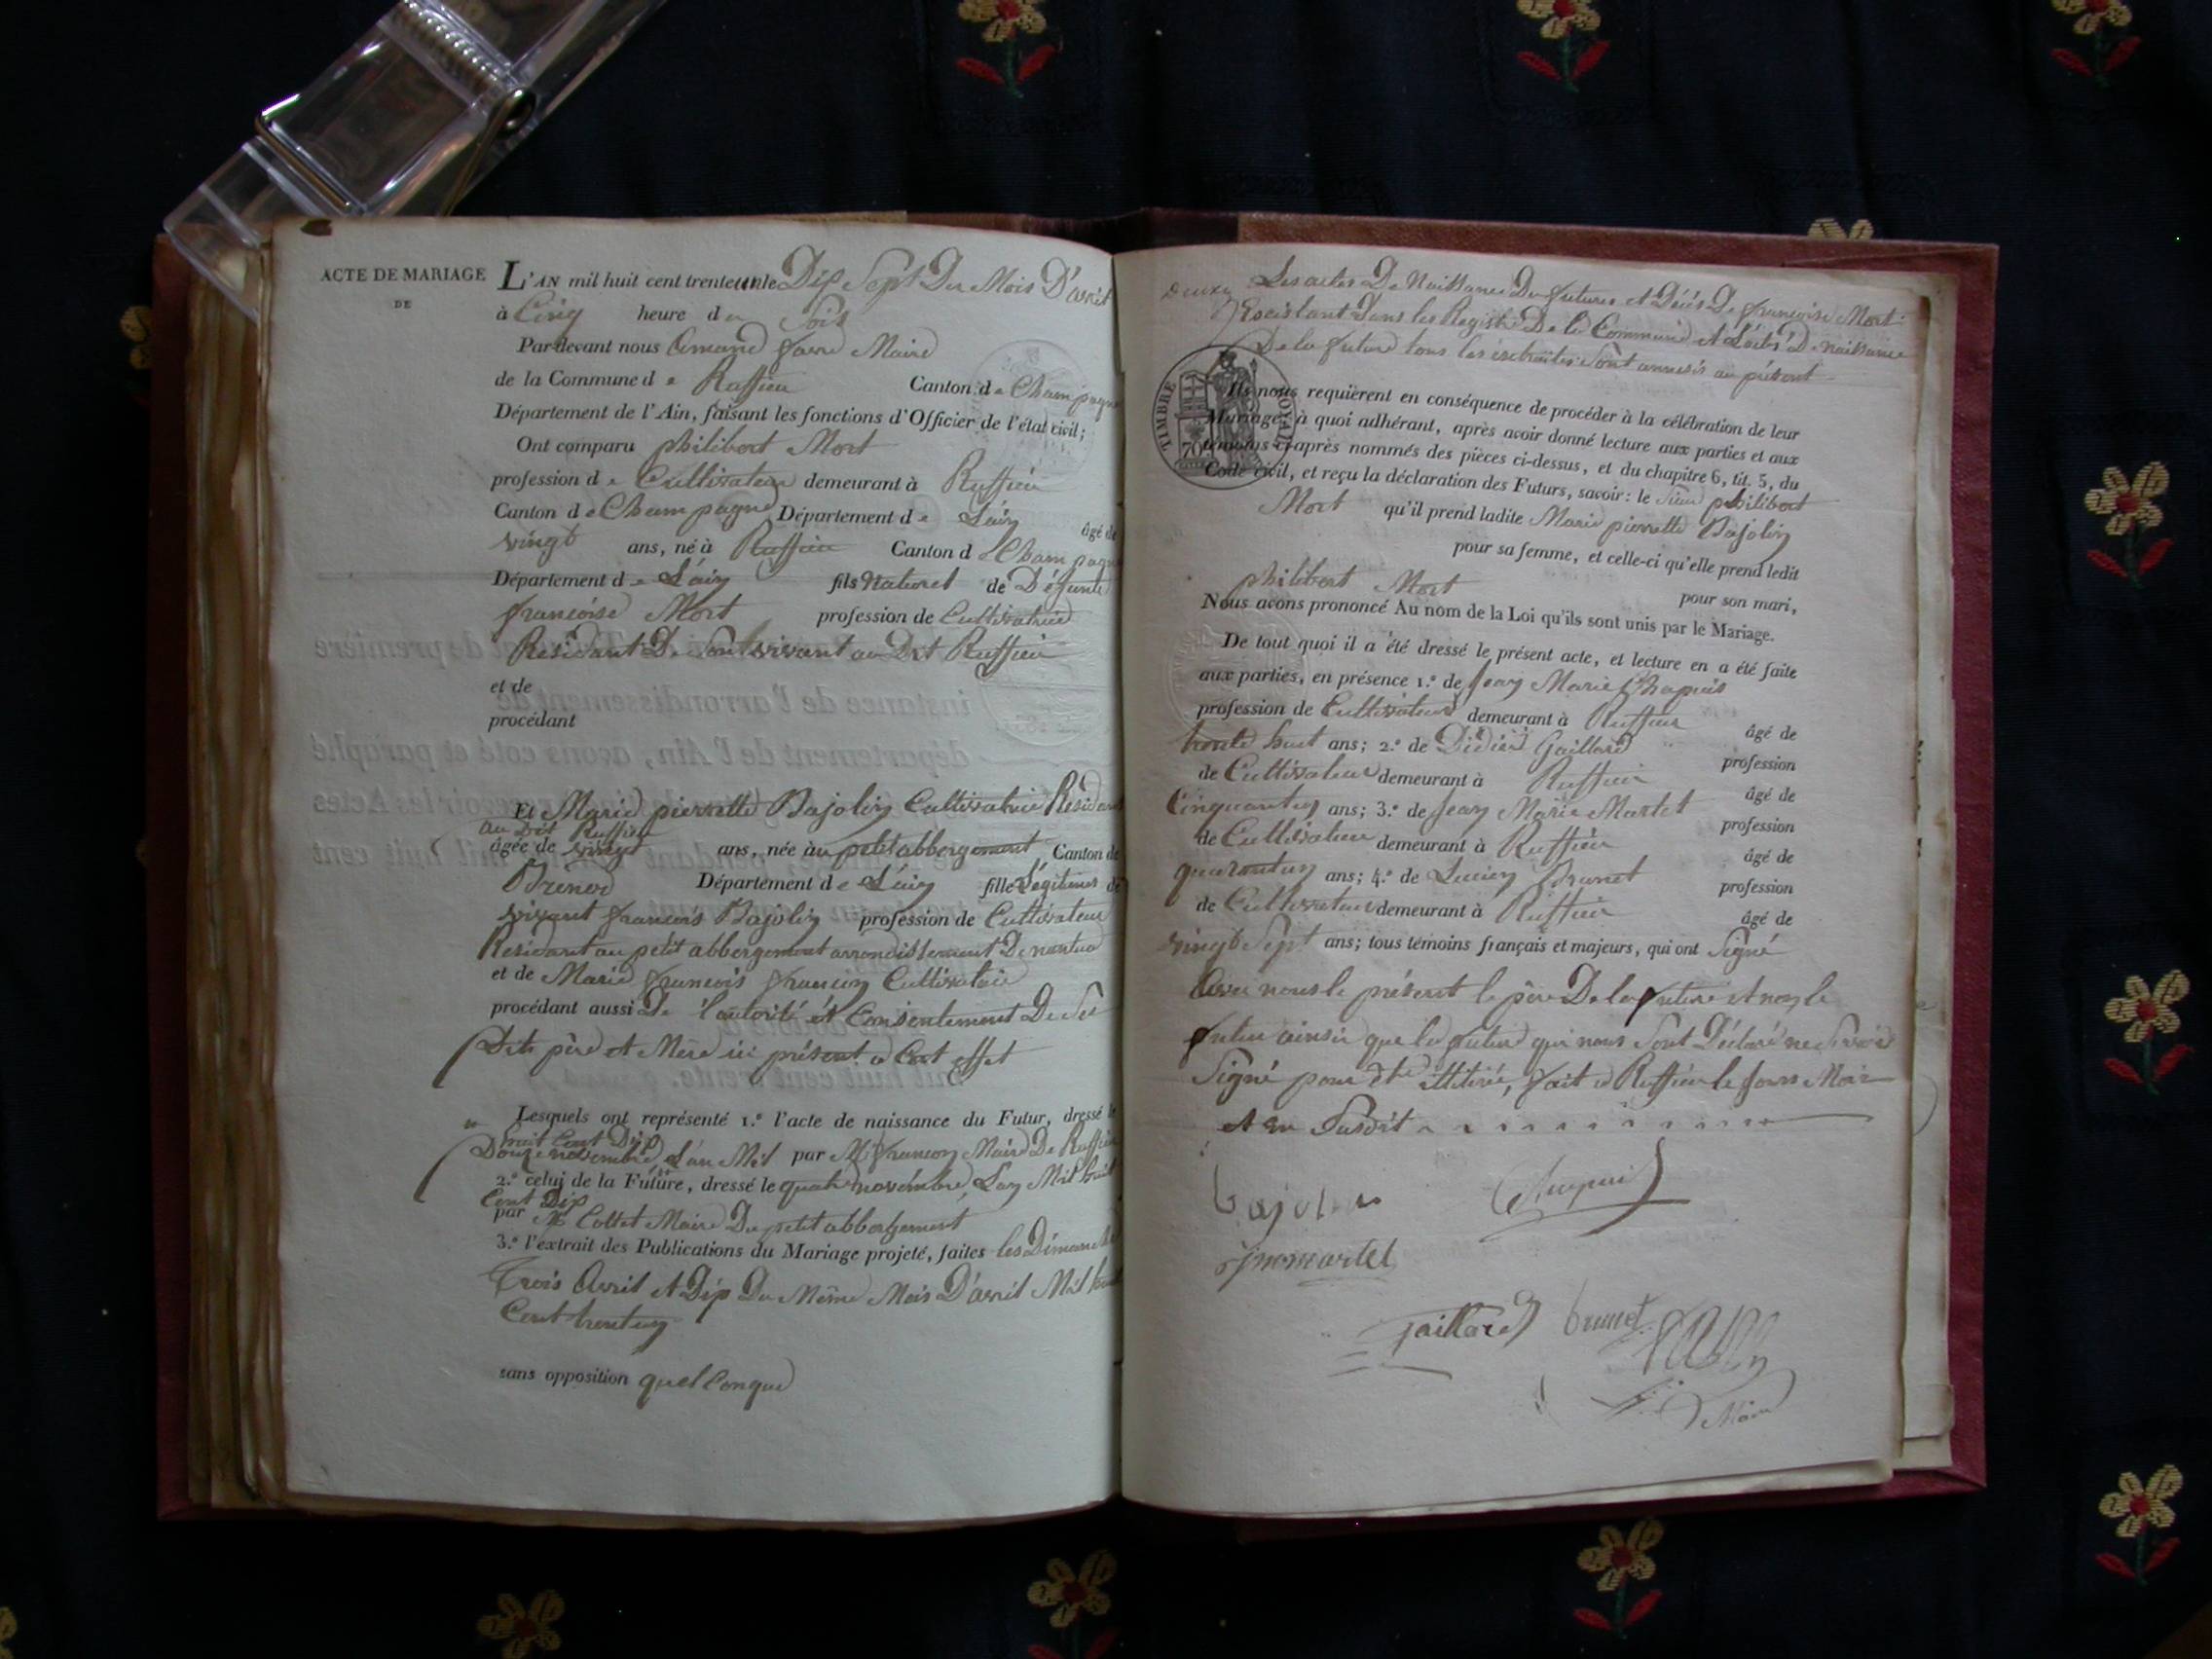 ACTE DE MARIAGE
DE
L'AN mil huit cent trente un le Dix Sept Du Mois D'avril
à Cinq heure du Soir
Par-devant nous Amand favre Maire
de la Commune de Ruffieu Canton de Champagne
Département de l'Ain, faisant les fonctions d'Officier de l'état civil;
Ont comparu philibert Mort
profession de Cultivateur demeurant à Ruffieu
Canton de Champagne Département de L'ain âgé de
vingt ans, né à Ruffieu Canton de Champagne
Département de L'ain fils Naturel de Défunte
francoise Mort profession de Cultivatrice
Residant De Son vivant au Dit Ruffieu
et de
procédant
Et Marie pierrette Bajolin Cultivatrice Residant
au Dit Ruffieu
âgée de vingt ans, née au petit abbergement Canton de
Brénod Département de L'ain fille Légitime de
vivant francois Bajolin profession de Cultivateur
Residant au petit abbergement arrondissement De nantua
et de Marie francois francon Cultivatrice
procédant aussi De l'autorité et Consentement De Ses
Dits père et Mère ici présent a Cet effet
Lesquels ont représenté 1.° l'acte de naissance du Futur, dressé le
huit Cent Dix
Douze novembre L'an Mil par Mr francon Maire De Ruffieu
2.° celui de la Future, dressé le quatre novembre, L'an Mil huit
Cent Dix
par Mr Cottet Maire Du petit abbergement
3.° l'extrait des Publications du Mariage projeté, faites les Dimanches
Trois Avril et Dix Du Même Mois D'avril Mil huit
Cent trentun
sans opposition quelconque
Les actes De Naissance Du future et Décès De francoise Mort
Existant Dans les Registre De la Commune et L'acte De naissance
De la future tous les extraits Sont annexés au présent
TIMBRE ROYAL
70
Ils nous requièrent en conséquence de procéder à la célébration de leur
Mariage; à quoi adhérant, après avoir donné lecture aux parties et aux
témoins ci-après nommés des pièces ci-dessus, et du chapitre 6, tit. 5, du
Code civil, et reçu la déclaration des Futurs, savoir: le Sieur philibert
Mort qu'il prend ladite Marie pierrette Bajolin
pour sa femme, et celle-ci qu'elle prend ledit
philibert Mort pour son mari,
Nous avons prononcé Au nom de la Loi qu'ils sont unis par le Mariage.
De tout quoi il a été dressé le présent acte, et lecture en a été faite
aux parties, en présence 1.° de Jean Marie Chapuis
profession de Cultivateur demeurant à Ruffieu âgé de
trente huit ans; 2.° de Didier Gaillard profession
de Cultivateur demeurant à Ruffieu âgé de
Cinquantun ans; 3.° de Jean Marie Martel profession
de Cultivateur demeurant à Ruffieu âgé de
quarantun ans; 4.° de Lucien Brunet profession
de Cultivateur demeurant à Ruffieu âgé de
vingt Sept ans; tous témoins français et majeurs, qui ont Signé
Avec nous le présent le père De la future et non le
futur ainsi que la future qui nous Sont Déclaré ne Savoir
Signé pour être illitiré, fait à Ruffieu le Jours Mois
et an Susdit
bajolin
Chapuis
jmmartel
gaillard
brunet
Maire